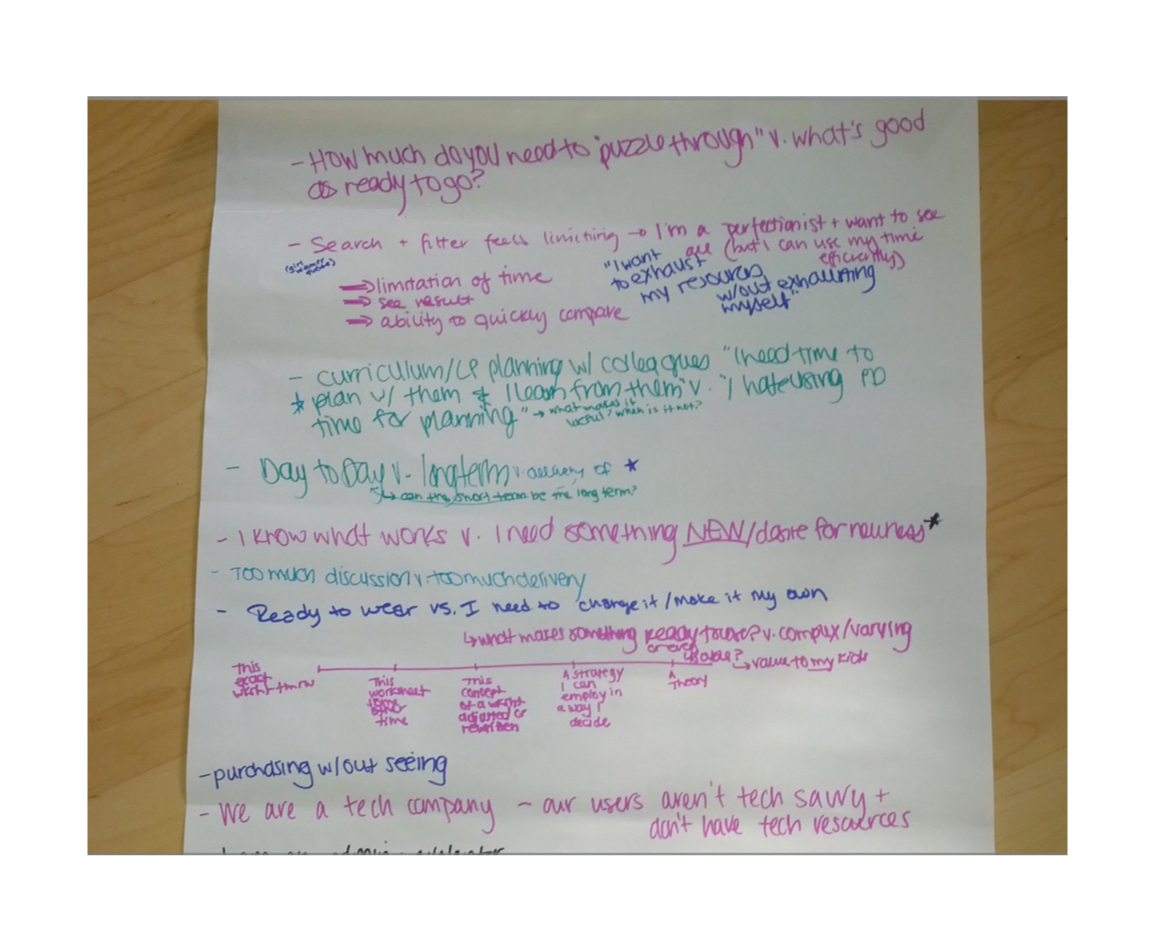 - How much do you need to "puzzle through" v. what's good
as ready to go?
- Search + filter feels limiting → I'm a perfectionist + want to see
all (but I can use my time
efficiently)
⇒ limitation of time
⇒ see result
⇒ ability to quickly compare
"I want
to exhaust
my resources
w/out exhausting
myself"
- curriculum/LP planning w/ colleagues "I need time to
* plan w/ them & I learn from them" v. "I hate using PD
time for planning" → what makes it
useful? when is it not?
- Day to Day v. longterm v. of *
↳ can the short-term be the long term?
- I know what works v. I need something NEW/desire for newness*
- Too much discussion v. too much delivery
- Ready to wear vs. I need to change it/make it my own
↳ what makes something ready to use? v. complex/varying
or even
usable? ↳ value to my kids
This
exact
wksht tmrw
This
worksheet
time
This
concept
of a wksht
adjusted or
rewritten
A strategy
I can
employ in
a way I
decide
A
Theory
- purchasing w/out seeing
- We are a tech company - our users aren't tech savvy +
don't have tech resources